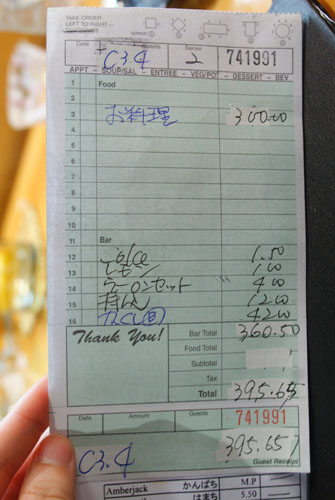 TAKE ORDER
LEFT TO RIGHT
Date Guests Server 741991
C34 2
APPT - SOUP/SAL - ENTREE - VEG/POT - DESSERT - BEV
1 Food
2
3 お料理 300.00
4
5
6
7
8
9
10
11 Bar
12 1.50
13 レモン 1.00
14 ウーロンセット 4.00
15 12.00
16 42.00
Thank You!
Bar Total 360.50
Food Total
Subtotal
Tax
Total 395.65
Date Amount Guests 741991
C3.4 395.65
Guest Receipt
Amberjack かんぱち M.P
はまち 5.50